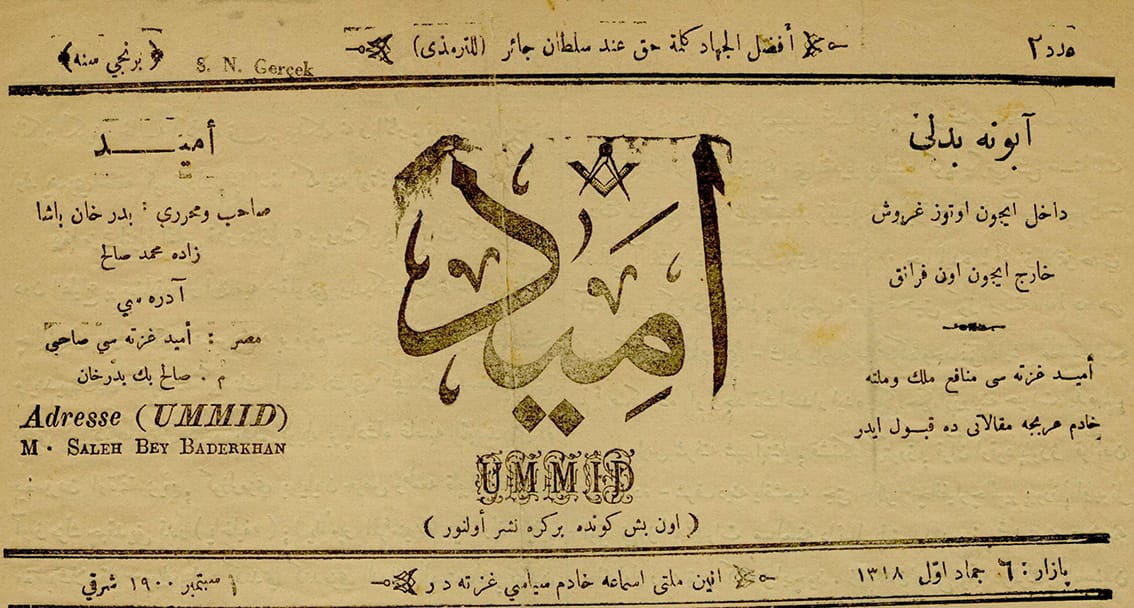 عدد ٢
أفضل الجهاد كلمة حق عند سلطان جائر (للترمذى)
برنجي سنه
S. N. Gerçek
آبونه بدلى
داخل ايچون اوتوز غروش
خارج ايچون اون فرانق
أميد غزته سى منافع ملك وملته
خادم عربجه مقالاتى ده قبول ايدر
اميد
UMMID
( اون بش كونده بركره نشر أولنور )
أميد
صاحب ومحررى : بدر خان باشا
زاده محمد صالح
آدره سي
مصر : أميد غزته سي صاحبى
م . صالح بك بدرخان
Adresse (UMMID)
M. SALEH BEY BADERKHAN
پازار : ٦ جماد اوّل ١٣١٨
انين ملتى اسماعه خادم سياسى غزته در
١ سبتمبر ١٩٠٠ شرقي